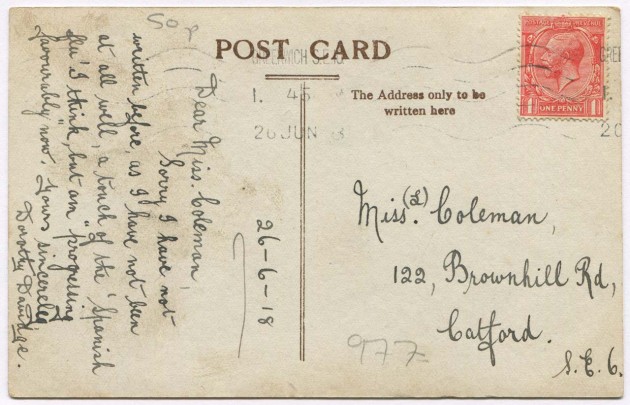 50p
POST CARD
GREENWICH S.E.10
1. 45
26 JUN 18
The Address only to be
written here
POSTAGE REVENUE
ONE PENNY
GREE
1.
26
26-6-18
Dear Miss. Coleman,
Sorry I have not
written before, as I have not been
at all well, a touch of the "Spanish
flu" I think, but am "progressing
favourably" now. Yours sincerely
Dorothy
Miss. (L) Coleman,
122, Brownhill Rd,
Catford.
S.E.6.
977